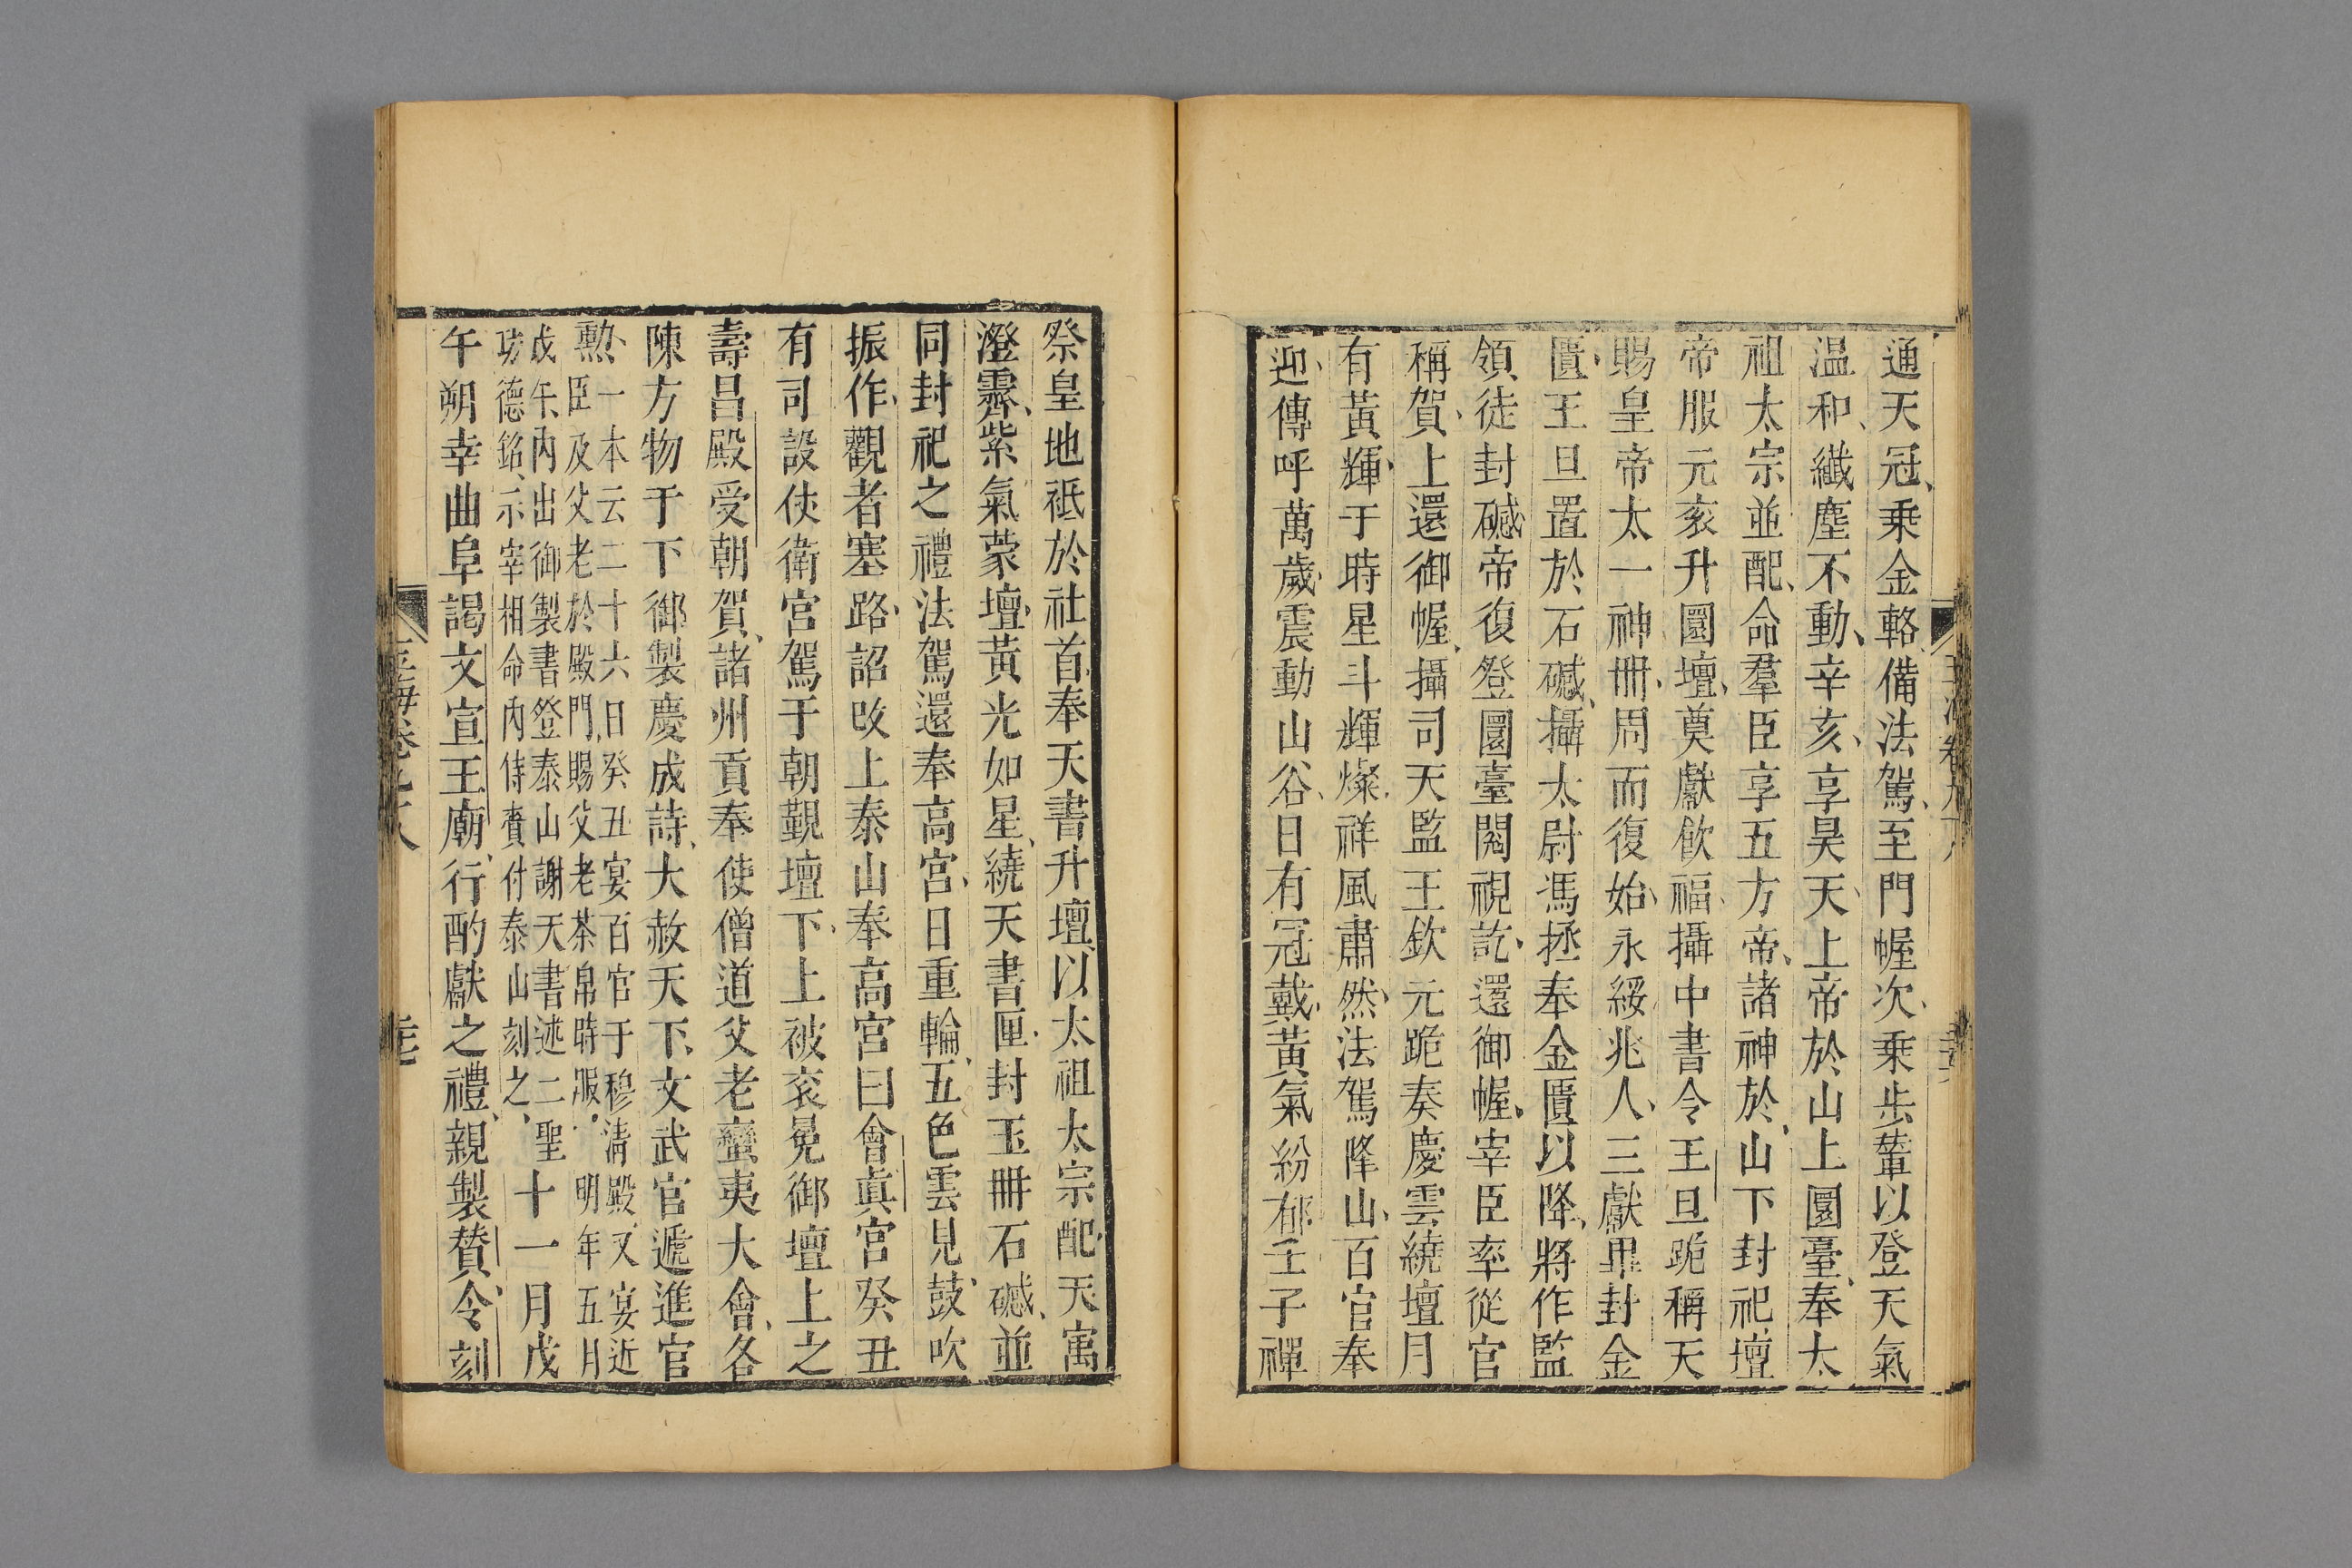 通天冠、乗金輅、備法駕、至門幄次、乗步輦以登天氣
温和、纖塵不動、辛亥、享昊天上帝於山上圜臺、奉太
祖太宗並配、命羣臣享五方帝、諸神於山下封祀壇
帝服元衮升圜壇、奠獻飮福、攝中書令王旦跪稱天
賜皇帝太一神冊、周而復始、永綏兆人、三獻畢封金
匱、王旦置於石䃭、攝太尉馮拯奉金匱以降、將作監
領徒封䃭、帝復登圜臺閱視訖、還御幄、宰臣率從官
稱賀、上還御幄、攝司天監王欽元跪奏慶雲繞壇月
有黃輝、于時星斗輝燦、祥風肅然、法駕降山、百官奉
迎、傳呼萬歲、震動山谷、日有冠戴、黃氣紛郁壬子禪
祭皇地祇於社首、奉天書升壇、以太祖太宗配、天寓
澄霽、紫氣蒙壇、黃光如星、繞天書匣、封玉冊石䃭、並
同封祀之禮法駕還奉高宫、日重輪、五色雲見、鼓吹
振作、觀者塞路、詔改上泰山奉高宮曰會眞宮癸丑
有司設仗衛宮駕于朝覲壇下、上被衮冕御壇上之
壽昌殿受朝賀、諸州貢奉使僧道父老蠻夷大會、各
陳方物于下御製慶成詩、大赦天下、文武官遞進官
勲、一本云二十六日癸丑宴百官于穆清殿、又宴近
臣及父老於殿門、賜父老茶帛時服、明年五月
戊午、内出御製書登泰山謝天書述二聖
功德銘、示宰相命内侍賫付泰山刻之、
十一月戊
午朔幸曲阜謁文宣王廟、行酌獻之禮、親製贊、令刻